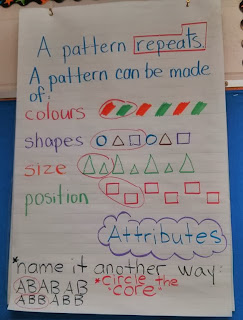 A pattern repeats.
A pattern can be made
of:
colours
shapes
size
position
Attributes
*name it another way:
ABABAB
ABBABB
*circle the
core